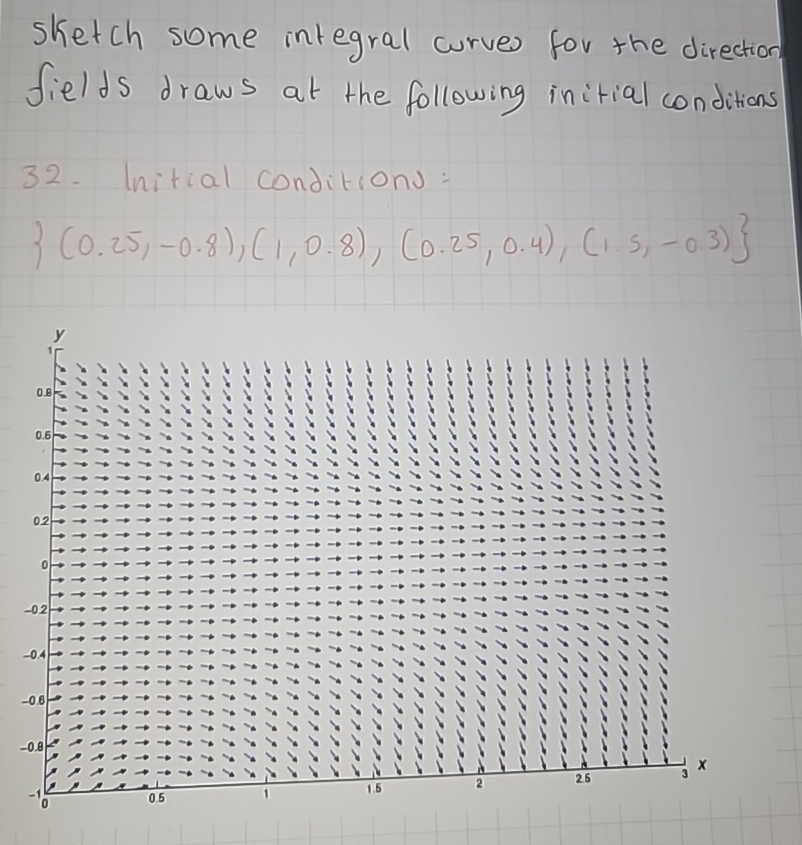 sketch some integral curves for the direction
fields draws at the following initial conditions
32- Initial conditions:
} (0.25, -0.8), (1, 0.8), (0.25, 0.4), (1.5, -0.3)}
y
1
0.8
0.6
0.4
0.2
0
-0.2
-0.4
-0.6
-0.8
-1
0 0.5 1 1.5 2 2.5 3 x